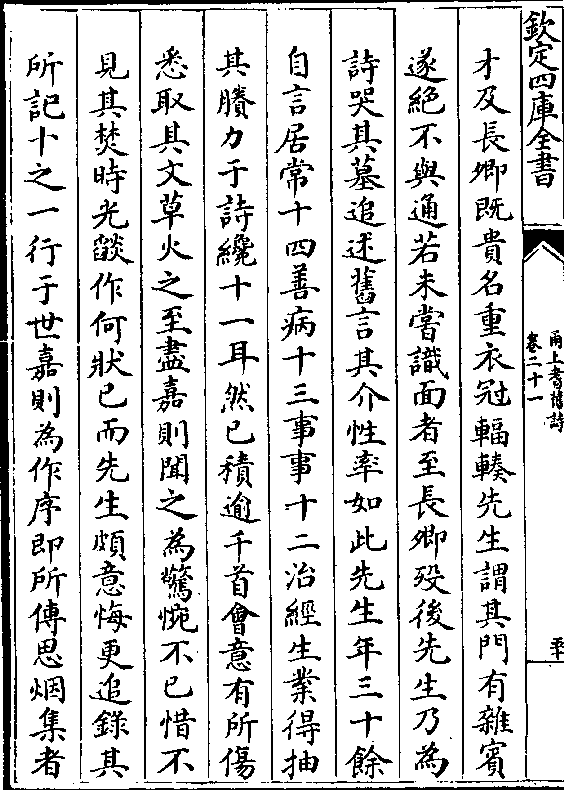 欽定四庫全書
甬上耆舊詩
卷二十一
才及長卿既貴名重衣冠輻輳先生謂其門有雜賓
遂絕不與通若未嘗識面者至長卿歿後先生乃為
詩哭其墓追述舊言其介性率如此先生年三十餘
自言居常十四善病十三事事十二治經生業得抽
其賸力于詩纔十一耳然已積逾千首會意有所傷
悉取其文草火之至盡嘉則聞之為驚惋不已惜不
見其焚時光燄作何狀已而先生頗意悔更追錄其
所記十之一行于世嘉則為作序即所傳思烟集者